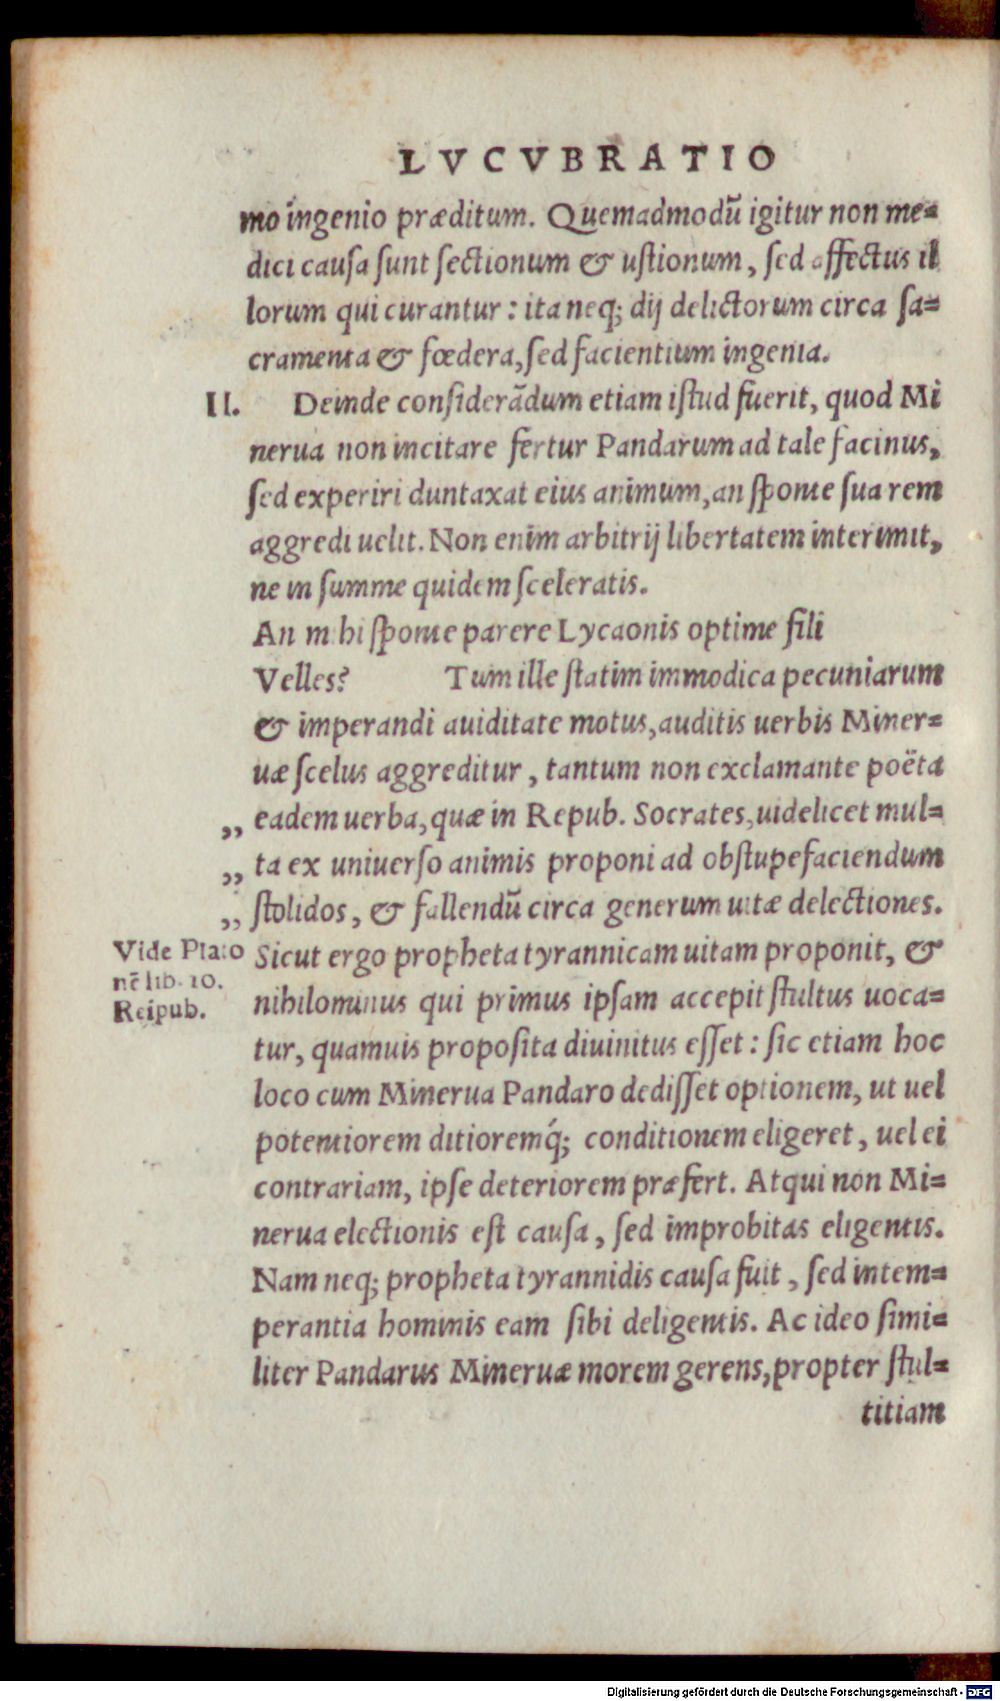 LVCVBRATIO
mo ingenio præditum. Quemadmodũ igitur non me=
dici causa sunt sectionum & ustionum, sed affectus il
lorum qui curantur: ita neq; dij delictorum circa sa=
cramenta & fœdera, sed facientium ingenia.
II. Deinde considerãdum etiam istud fuerit, quod Mi
nerua non incitare fertur Pandarum ad tale facinus,
sed experiri duntaxat eius animum, an sponte sua rem
aggredi uelit. Non enim arbitrij libertatem interimit,
ne in summe quidem sceleratis.
An mihi sponte parere Lycaonis optime fili
Velles? Tum ille statim immodica pecuniarum
& imperandi auiditate motus, auditis uerbis Miner=
uæ scelus aggreditur, tantum non exclamante poëta
,, eadem uerba, quæ in Repub. Socrates, uidelicet mul=
,, ta ex uniuerso animis proponi ad obstupefaciendum
,, stolidos, & fallendũ circa generum uitæ delectiones.
Vide Plato
nẽ lib. 10.
Reipub.
Sicut ergo propheta tyrannicam uitam proponit, &
nihilominus qui primus ipsam accepit stultus uoca=
tur, quamuis proposita diuinitus esset: sic etiam hoc
loco cum Minerua Pandaro dedisset optionem, ut uel
potentiorem ditioremq́; conditionem eligeret, uel ei
contrariam, ipse deteriorem præfert. Atqui non Mi=
nerua electionis est causa, sed improbitas eligentis.
Nam neq; propheta tyrannidis causa fuit, sed intem=
perantia hominis eam sibi deligentis. Ac ideo simi=
liter Pandarus Mineruæ morem gerens, propter stul=
titiam
Digitalisierung gefördert durch die Deutsche Forschungsgemeinschaft - DFG